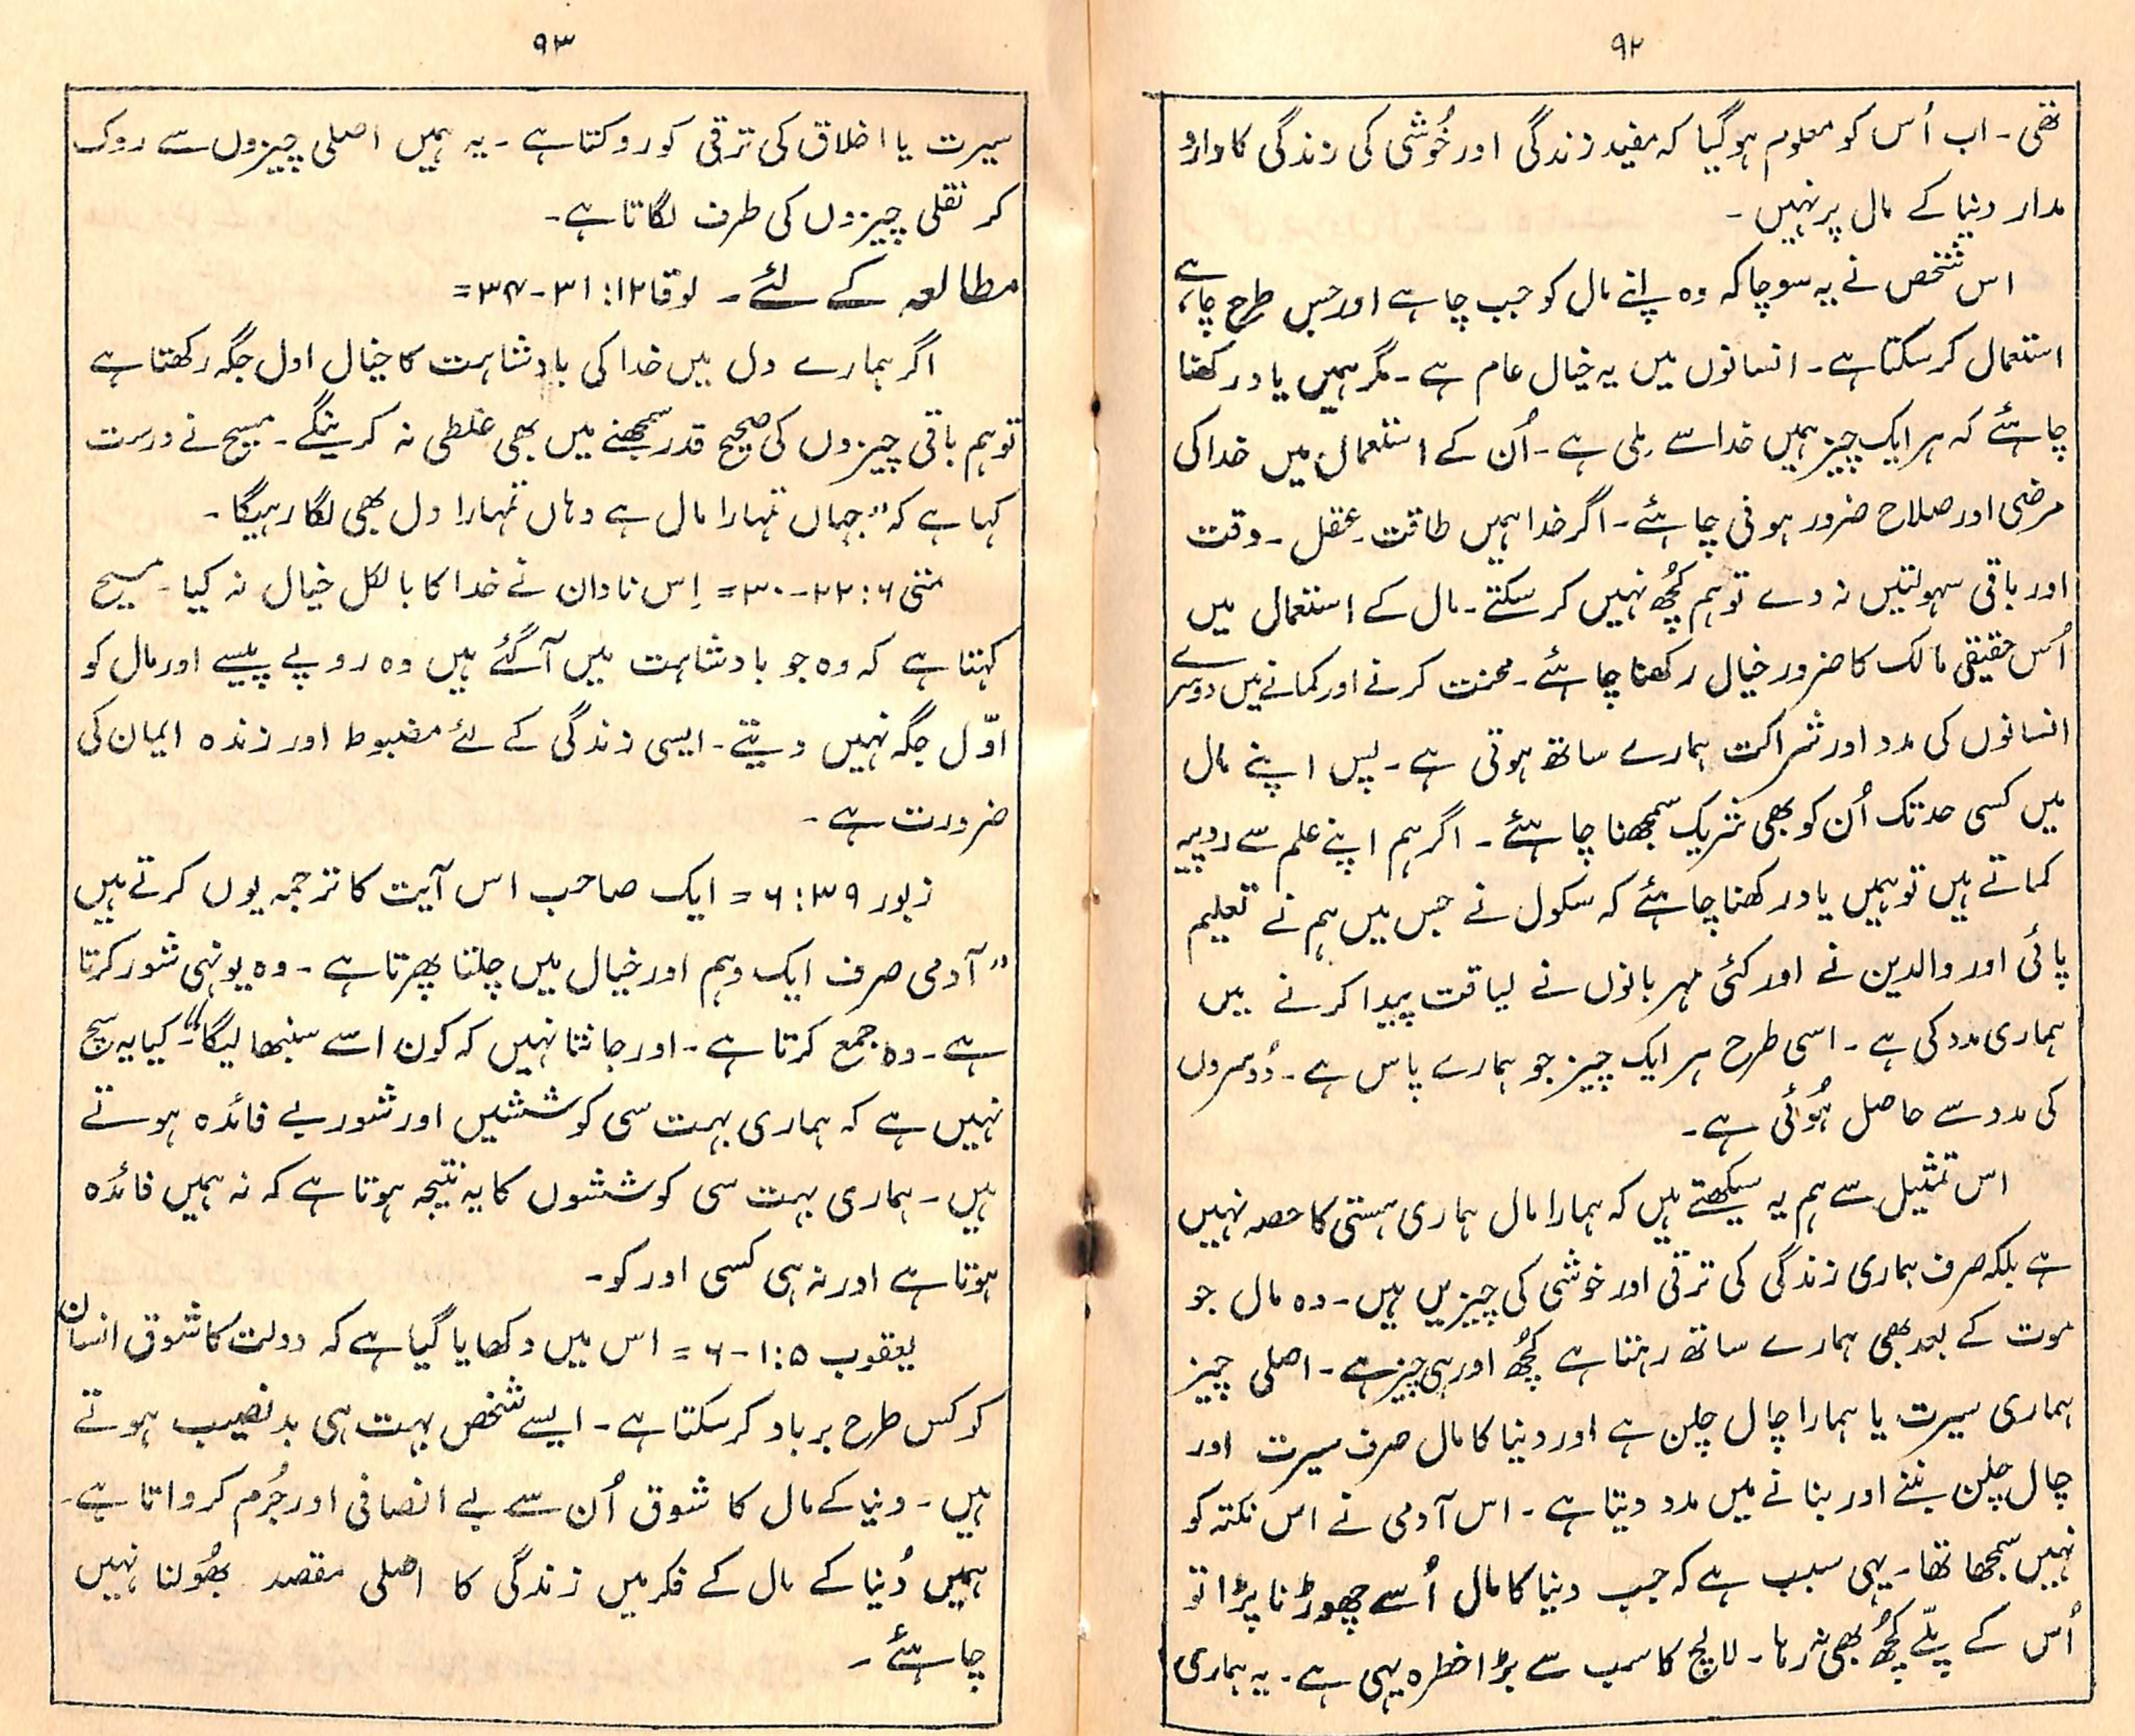 ۹۲
تھی۔ اب اُس کو معلوم ہوگیا کہ مفید زندگی اور خُوشی کی زندگی کا دارو
مدار دنیا کے مال پر نہیں۔
اس شخص نے یہ سوچا کہ وہ اپنے مال کو جب چاہے اور جس طرح چاہے
استعمال کر سکتا ہے۔ انسانوں میں یہ خیال عام ہے۔ مگر ہمیں یاد رکھنا
چاہئے کہ ہر ایک چیز ہمیں خدا سے مِلی ہے۔ اُن کے استعمال میں خدا کی
مرضی اور صلاح ضرور ہونی چاہئے۔ اگر خدا ہمیں طاقت۔ عقل۔ وقت
اور باقی سہولتیں نہ دے تو ہم کچُھ نہیں کر سکتے۔ مال کے اِستعمال میں
اُس حقیقی مالک کا ضرور خیال رکھنا چاہئے۔ محنت کرنے اور کمانے میں دوسرے
انسانوں کی مدد اور شراکت ہمارے ساتھ ہوتی ہے۔ پس اپنے مال
میں کسی حد تک اُن کو بھی شریک سمجھنا چاہئے۔ اگر ہم اپنے علم سے روپیہ
کماتے ہیں تو ہمیں یاد رکھنا چاہئے کہ سکول نے جس میں ہم نے تعلیم
پائی اور والدین نے اور کئی مہربانوں نے لیاقت پیدا کرنے میں
ہماری مدد کی ہے۔ اسی طرح ہر ایک چیز جو ہمارے پاس ہے۔ دُوسروں
کی مدد سے حاصل ہُوئی ہے۔
اس تمثیل سے ہم یہ سیکھتے ہیں کہ ہمارا مال ہماری ہستی کا حصہ نہیں
ہے بلکہ صرف ہماری زندگی کی ترقی اور خوشی کی چیزیں ہیں۔ وہ مال جو
موت کے بعد بھی ہمارے ساتھ رہتا ہے کچُھ اور ہی چیز ہے۔ اصلی چیز
ہماری سیرت یا ہمارا چال چلن ہے اور دنیا کا مال صرف سیرت اور
چال چلن بننے اور بنانے میں مدد دیتا ہے۔ اس آدمی نے اس نکتہ کو
نہیں سمجھا تھا۔ یہی سبب ہے کہ جب دنیا کا مال اُسے چھوڑنا پڑا تو
اُس کے پلّے کچُھ بھی نہ رہا۔ لالچ کا سب سے بڑا خطرہ یہی ہے۔ یہ ہماری
۹۳
سیرت یا اخلاق کی ترقی کو روکتا ہے۔ یہ ہمیں اصلی چیزوں سے روک
کر نقلی چیزوں کی طرف لگاتا ہے۔
مطالعہ کے لئے۔ لوقا ۱۲: ۳۱-۳۴=
اگر ہمارے دل میں خدا کی بادشاہت کا خیال اول جگہ رکھتا ہے
تو ہم باقی چیزوں کی صحیح قدر سمجھنے میں بھی غلطی نہ کرینگے۔ مسیح نے درست
کہا ہے کہ "جہاں تمہارا مال ہے وہاں تمہارا دل بھی لگا رہیگا۔
متی ۶: ۲۲-۳۰= اِس نادان نے خدا کا بالکل خیال نہ کیا۔ مسیح
کہتا ہے کہ وہ جو بادشاہت میں آگئے ہیں وہ روپے پیسے اور مال کو
اوّل جگہ نہیں دیتے۔ ایسی زندگی کے لئے مضبوط اور زندہ ایمان کی
ضرورت ہے۔
زبور ۳۹: ۶= ایک صاحب اس آیت کا ترجمہ یوں کرتے ہیں
"آدمی صرف ایک وہم اور خیال میں چلتا پھرتا ہے۔ وہ یونہی شور کرتا
ہے۔ وہ جمع کرتا ہے۔ اور جانتا نہیں کہ کون اسے سنبھالیگا"۔ کیا یہ سچ
نہیں ہے کہ ہماری بہت سی کوششیں اور شور بے فائدہ ہوتے
ہیں۔ ہماری بہت سی کوششوں کا یہ نتیجہ ہوتا ہے کہ نہ ہمیں فائدہ
ہوتا ہے اور نہ ہی کسی اور کو۔
یعقوب ۵: ۱-۶= اس میں دکھایا گیا ہے کہ دولت کا شوق انسان
کو کس طرح برباد کر سکتا ہے۔ ایسے شخص بہت ہی بدنصیب ہوتے
ہیں۔ دنیا کے مال کا شوق اُن سے بے انصافی اور جُرم کرواتا ہے۔
ہمیں دُنیا کے مال کے فکر میں زندگی کا اصلی مقصد بھُولنا نہیں
چاہئے۔